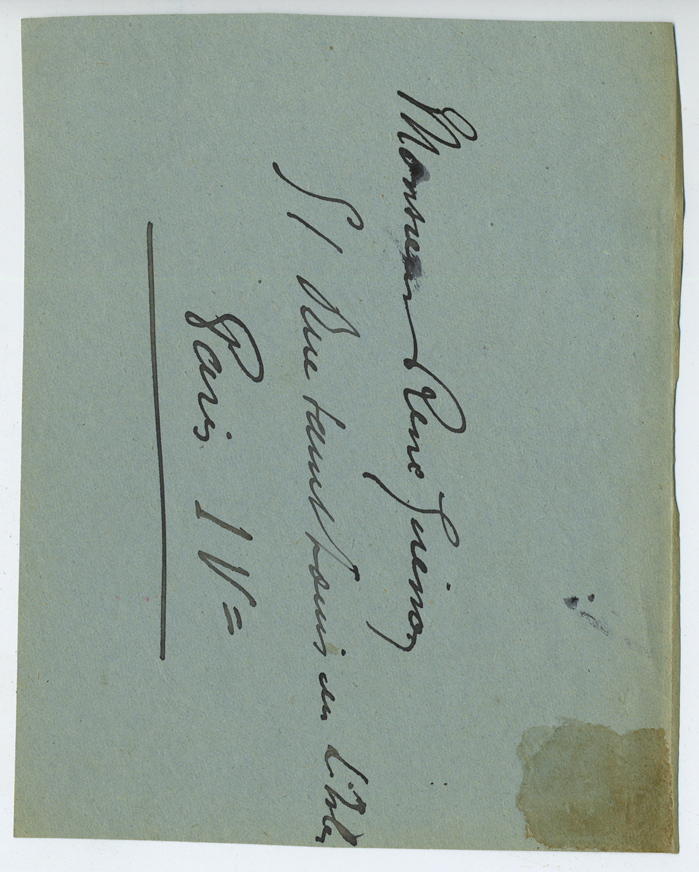 Monsieur Rene Guenon
51 Rue Saint Louis en L'Isle
Paris IV=